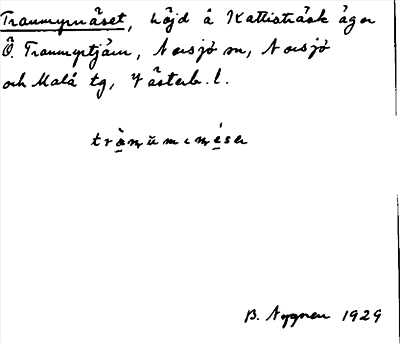 Tranmyrnäset, höjd å Kattisträsk ägor
Ö. Tranmyrtjärn, Norsjö sn, Norsjö
och Malå tg, Västerb. l.
B. Nygren 1929